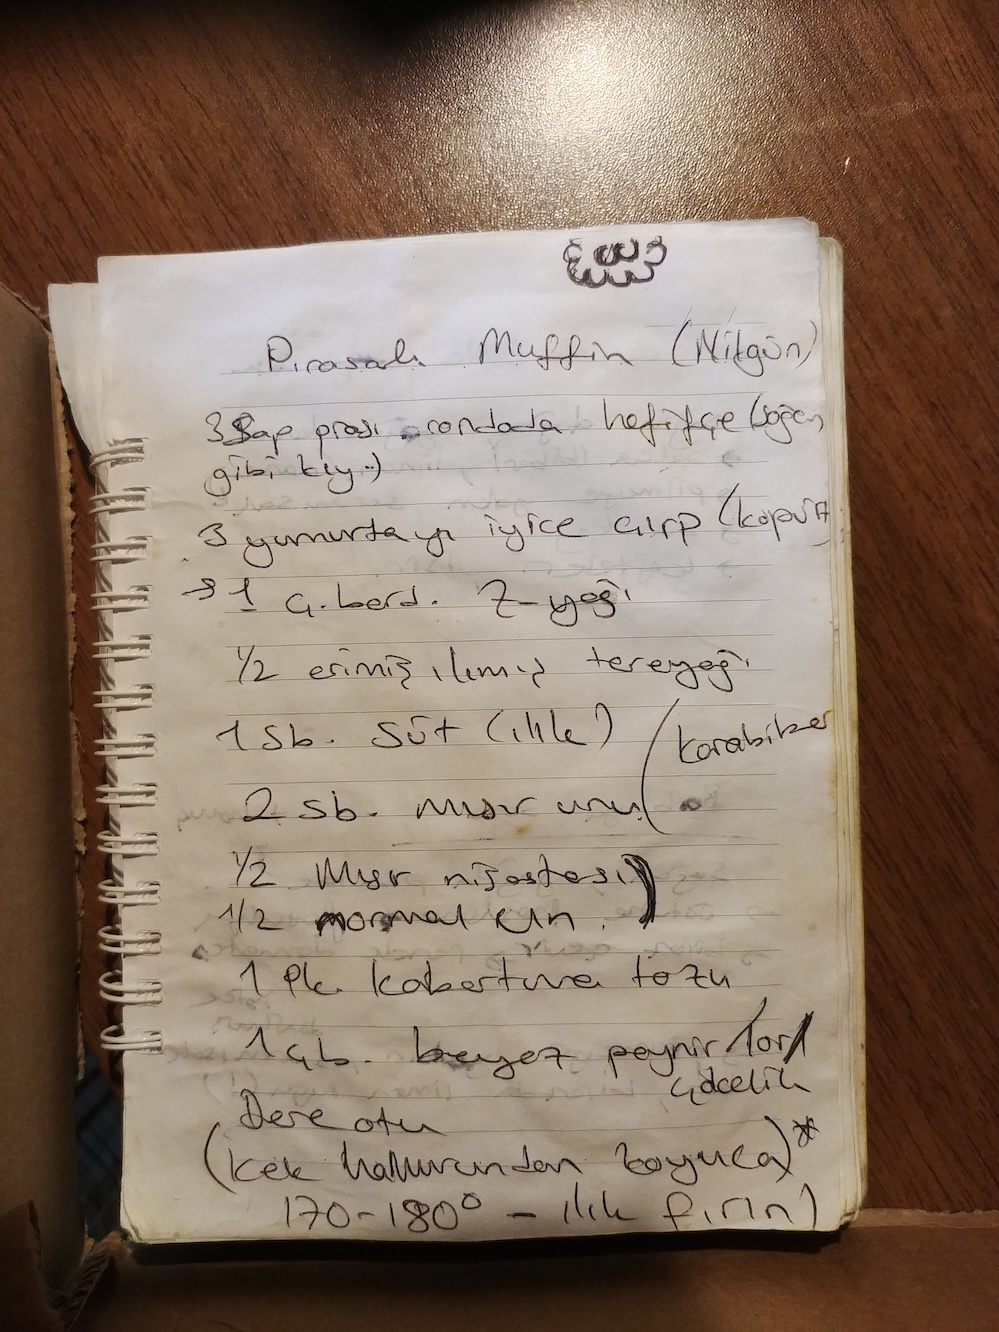 Pırasalı Muffin (Nilgün)
3 Sap prası rondoda hafifçe (soğan
gibi kıy.)
3 yumurtayı iyice çırp (köpürt
→ 1 ç.bard. Z-yağı
1/2 erimiş ılımış tereyağı
1 sb. süt (ılık)
karabiber
2 sb. mısır unu
1/2 Mısır nişastası
1/2 normal un.
1 Pk. kabartma tozu
1 çb. beyaz peynir/lor/
çökelik
Dereotu
(Kek hamurundan koyuca)*
170-180° - ılık fırın)